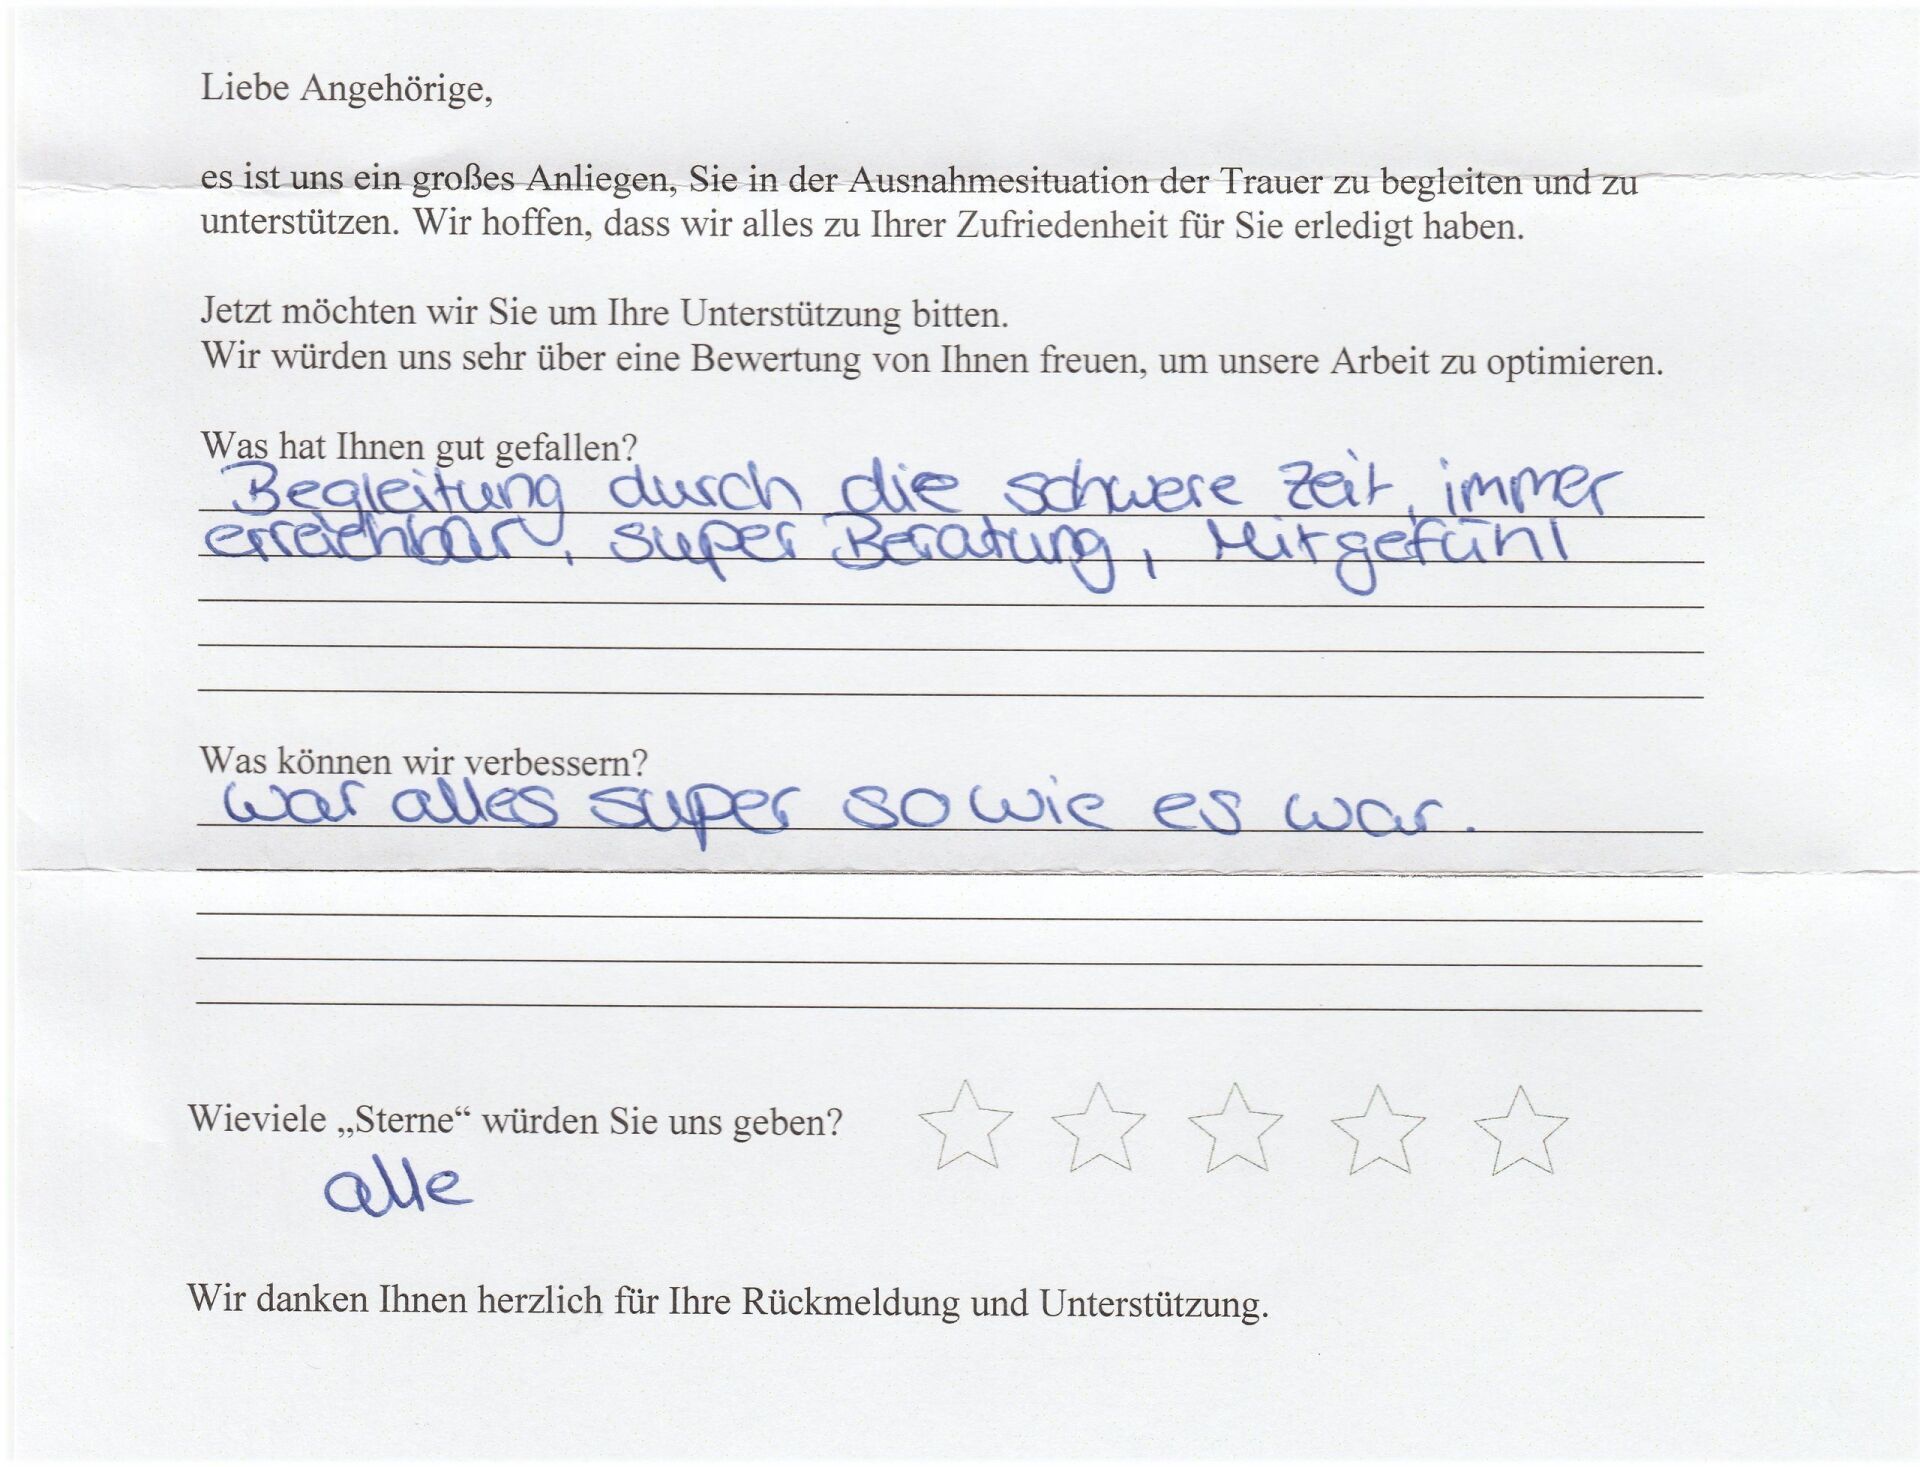 Liebe Angehörige,
es ist uns ein großes Anliegen, Sie in der Ausnahmesituation der Trauer zu begleiten und zu
unterstützen. Wir hoffen, dass wir alles zu Ihrer Zufriedenheit für Sie erledigt haben.
Jetzt möchten wir Sie um Ihre Unterstützung bitten.
Wir würden uns sehr über eine Bewertung von Ihnen freuen, um unsere Arbeit zu optimieren.
Was hat Ihnen gut gefallen?
Begleitung durch die schwere Zeit, immer
erreichbar, super Beratung, Mitgefühl
Was können wir verbessern?
war alles super so wie es war.
Wieviele „Sterne“ würden Sie uns geben?
alle
Wir danken Ihnen herzlich für Ihre Rückmeldung und Unterstützung.